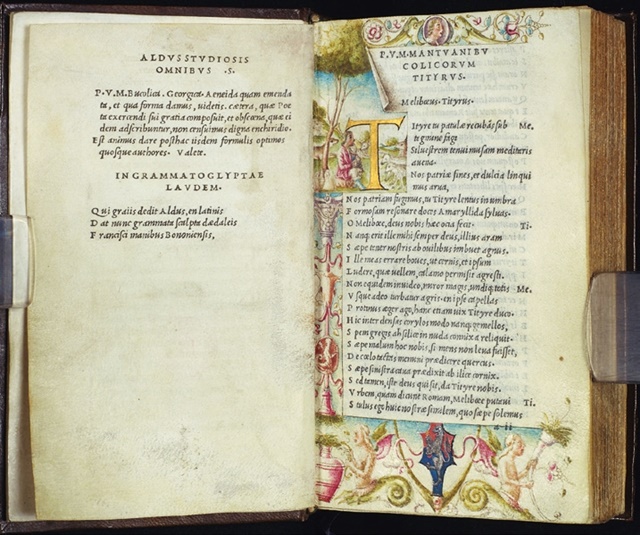 ALDVS STVDIOSIS
OMNIBVS .S.
P. V. M. Bucolica. Georgica. Aeneida quam emenda
ta, et qua forma damus, uidetis. cætera, quæ Poe
ta exercendi sui gratia composuit, et obscœna, quæ ei
dem adscribuntur, non censuimus digna enchiridio.
Est animus dare posthac iisdem formulis optimos
quosque authores. Valete.
IN GRAMMATOGLYPTAE
LAVDEM.
Qui graiis dedit Aldus, en latinis
Dat nunc grammata scalpta dædaleis
Francisci manibus Bononiensis.
P. V. M. MANTVANI BV
COLICORVM
TITYRVS.
Melibœus. Tityrus.
TItyre tu patulæ recubãs sub Me.
tegmine fagi
Siluestrem tenui musam meditaris
auena.
Nos patriæ fines, et dulcia linqui
mus arua,
Nos patriam fugimus, tu Tityre lentus in umbra
Formosam resonare doces Amaryllida syluas.
O Melibœe, deus nobis hæc ocia fecit. Ti.
Nanq; erit ille mihi semper deus, illius aram
Sæpe tener nostris ab ouilibus imbuet agnus.
Ille meas errare boues, ut cernis, et ipsum
Ludere, quæ uellem, calamo permisit agresti.
Non equidem inuideo, miror magis, undiq; totis Me.
Vsque adeo turbatur agris. en ipse capellas
Protinus æger ago, hanc etiam uix Tityre duco.
Hic inter densas corylos modo nanq; gemellos,
Spem gregis ah silice in nuda connixa reliquit.
Sæpe malum hoc nobis, si mens non leua fuisset,
De cœlo tactas memini prædicere quercus.
Sæpe sinistra caua prædixit ab ilice cornix.
Sed tamen, iste deus qui sit, da Tityre nobis.
Vrbem, quam dicunt Romam, Melibœe putaui Ti.
Stultus ego huic nostræ similem, quo sæpe solemus
a ii